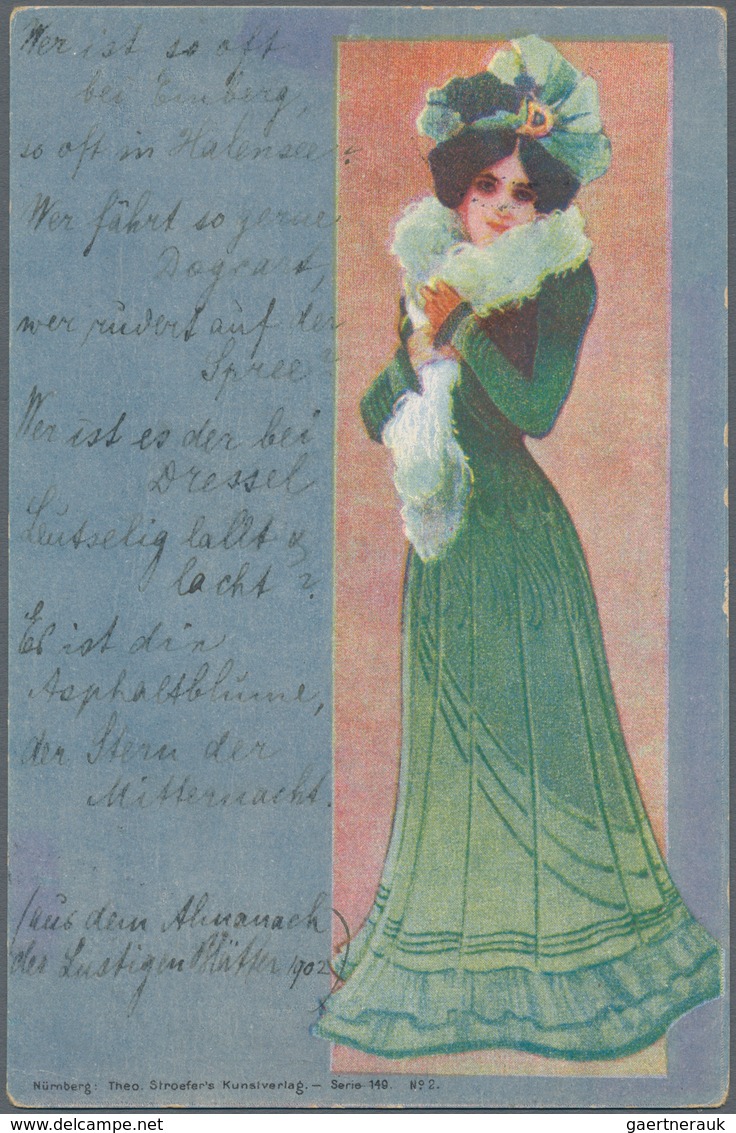 Wer ist so oft
bei Emberg,
so oft in Halensee?
Wer fährt so gerne
Dogcart,
wer rudert auf der
Spree?
Wer ist es der bei
Dressel
Leutselig lallt &
lacht?
Es ist die
Asphaltblume,
der Stern der
Mitternacht.
(aus dem Almanach
der Lustigen Blätter 1902)
Nürnberg: Theo. Stroefer's Kunstverlag. — Serie 149. No 2.
gaertnerauk